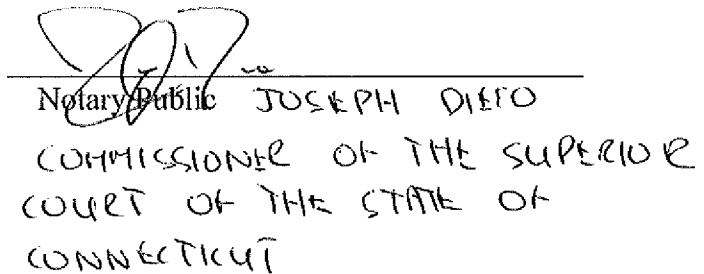 Notary Public JOSEPH DIETO
COMMISSIONER OF THE SUPERIOR
COURT OF THE STATE OF
CONNECTICUT